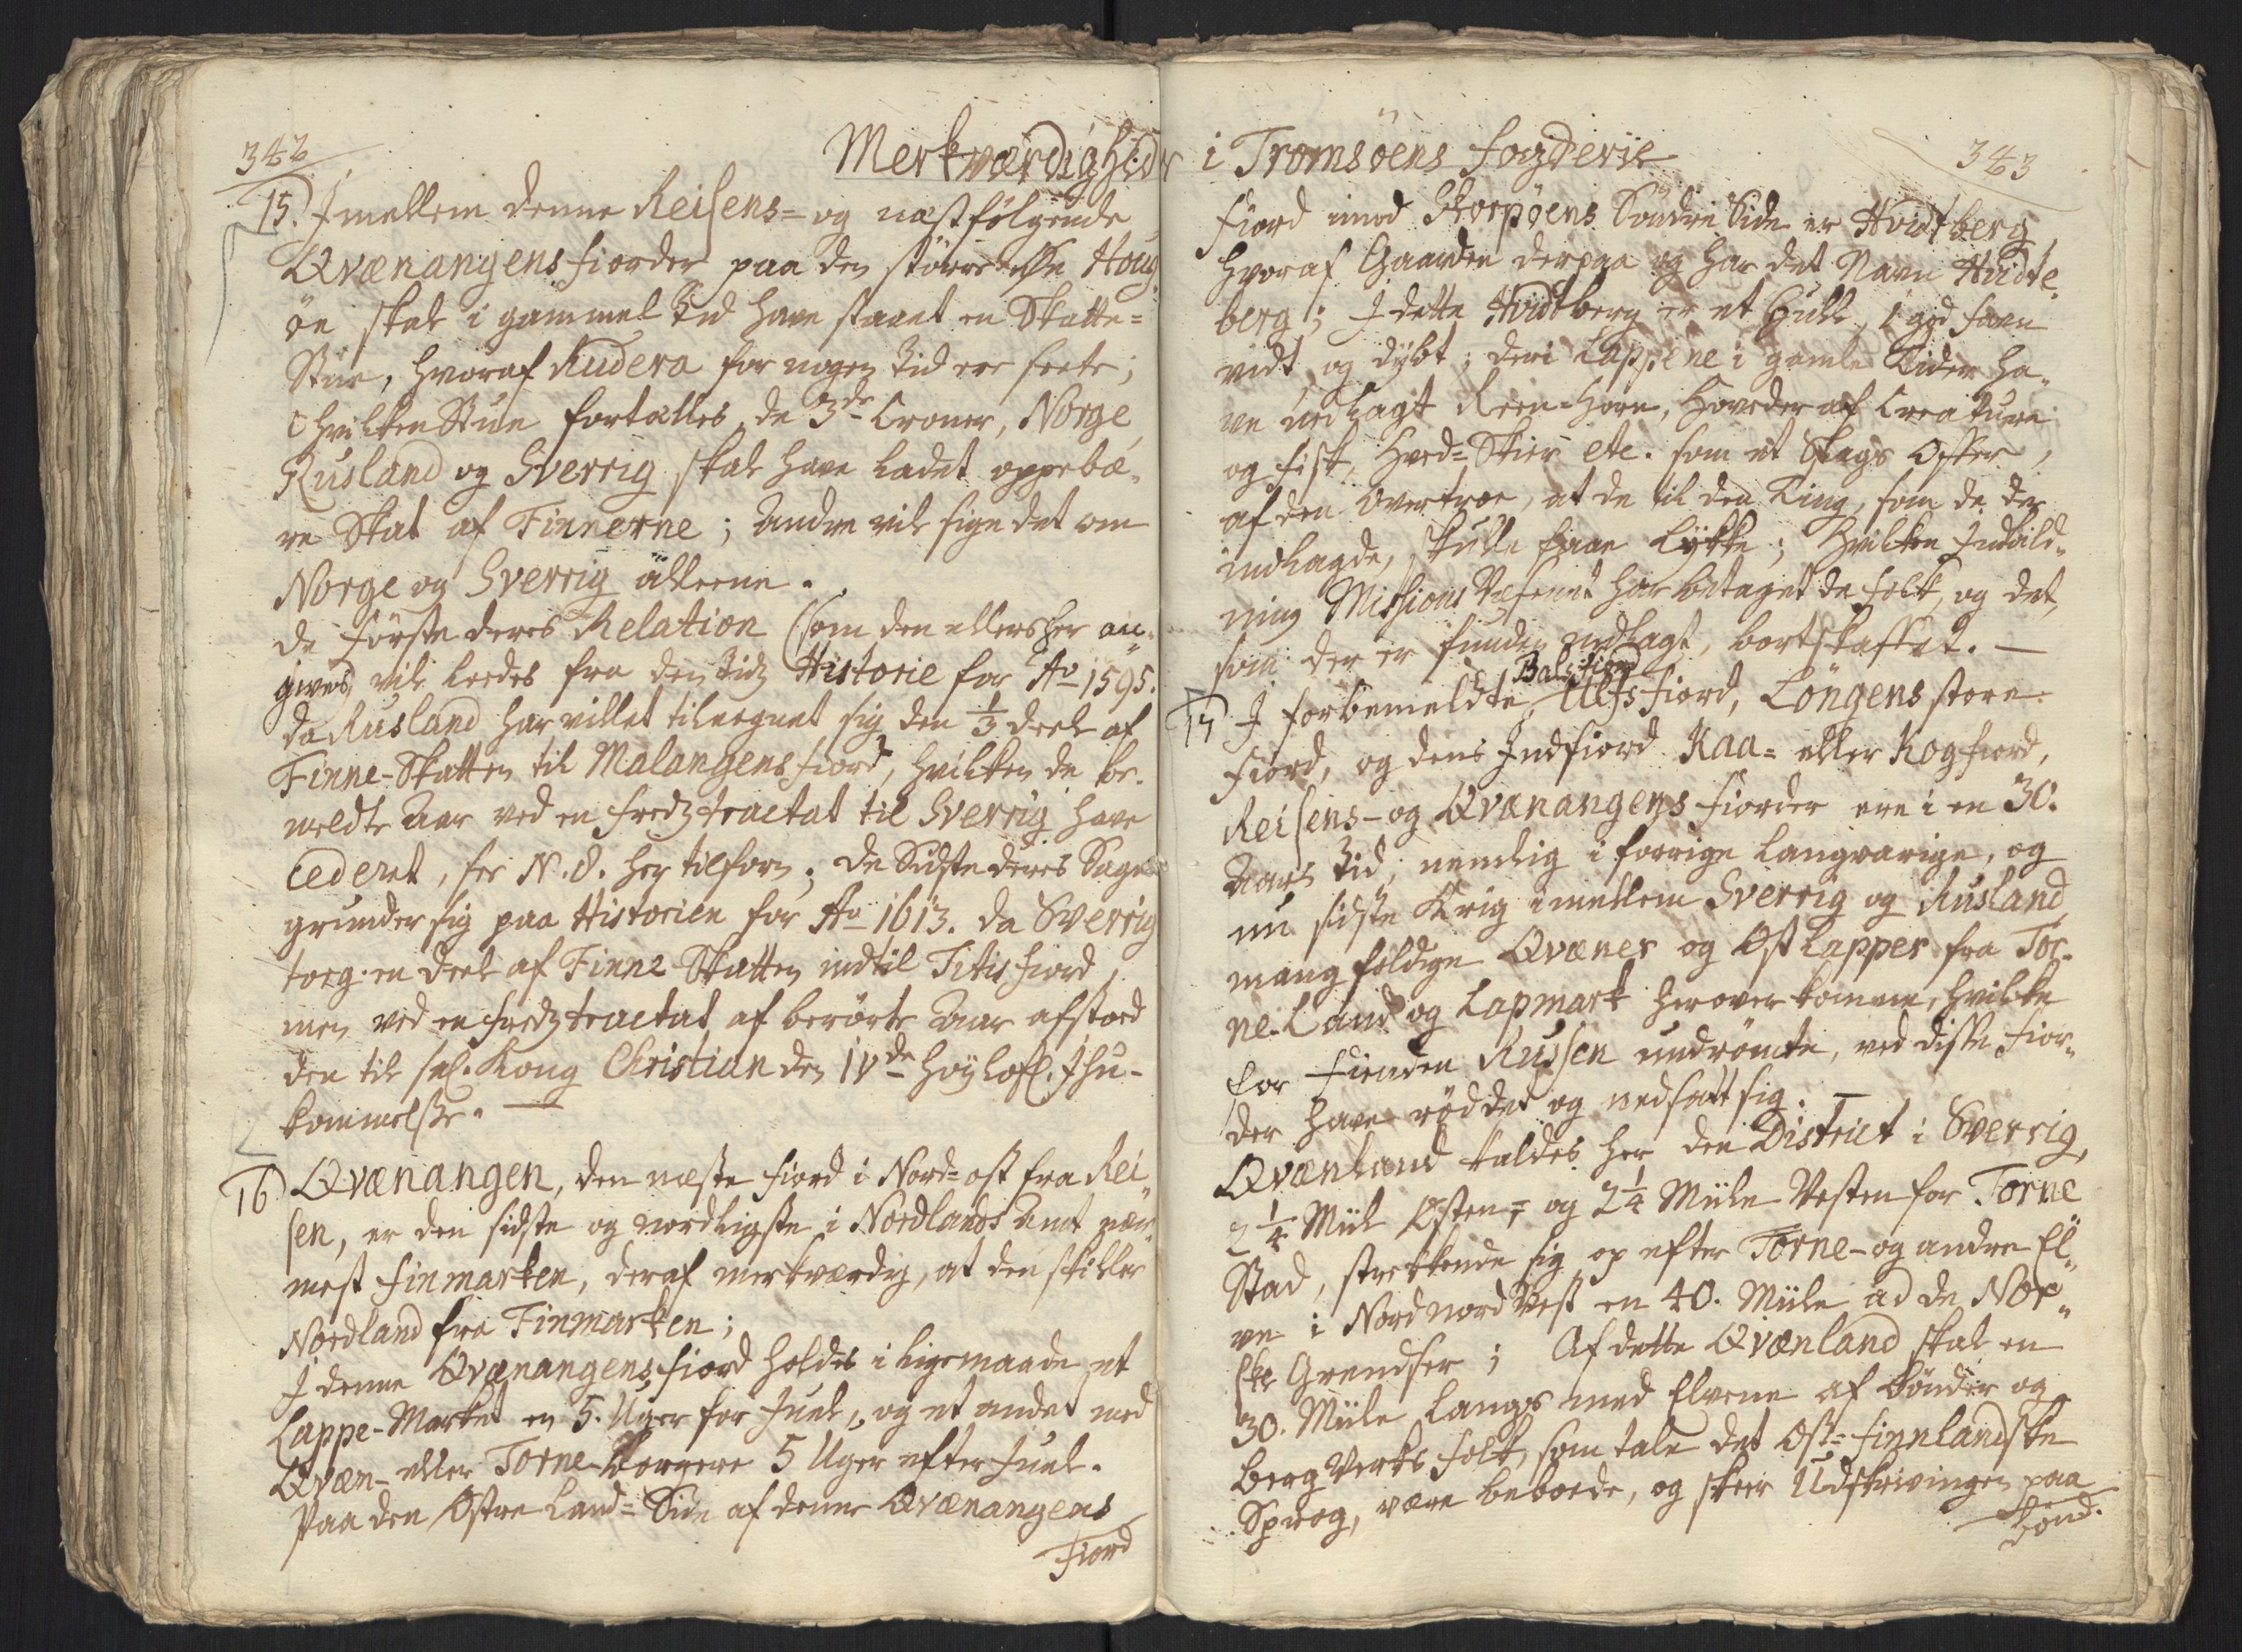 342
Merkværdigheder
15. Imellem denne Reisens- og næstfölgende
Qvænangens fiorder paa den större
öe skal i gammel Tid have staaet en Skatte-
Stue, hvoraf Rudera for nogen Tid ere seete;
I hvilken Stue fortælles, de 3de Croner, Norge,
Rusland og Sverrig skal have ladet oppebæ-
re Skat af Finnerne; Andre vil sige det om
Norge og Sverrig alleene.
De förste deres Relation (som den ellers her an-
gives) vil leedes fra den Tids Historie for Ao 1595.
da Rusland har villet tilegnet sig den 1/3 deel af
Finne-Skatten til Malangens fiord, hvilken de be-
meldte Aar ved en fredz tractat til Sverrig have
cederet, see N. 8. her tilforn; De Sidste deres Sagn
grunder sig paa Historien for Ao 1613. da Sverrig
toeg en deel af Finne Skatten indtil Titisfiord,
men ved en fredz tractat af berörte Aar afstoed
den til sal. Kong Christian den IVde höylofl. Ihu-
kommelsse. —
16 Qvænangen, den næste fiord i Nord-ost fra Rei-
sen, er den sidste og nordligste i Nordlands Amt nær-
mest Finmarken, deraf merkværdig, at den skiller
Nordland fra Finmarken;
I denne Qvænangens fiord holdes i ligemaade et
Lappe-Market en 5. Uger for Juel, og et andet med
Qvæn- eller Torne-Borgere 5 Uger efter Juel.
Paa den Östre Land-Side af denne Qvænangens
Fiord
i Tromsöens fogderie
343
Fiord imod Skorpöens Söndre Side er Hvidtberg,
hvoraf Gaarden derpaa og har det Navn Hvidte-
berg; I dette Hvidtberg er et Hull, 1 god favn
vidt og dybt; deri Lappene i gamle Tider ha-
ve nedlagt Reen-Horn, Hoveder af Creature
og fisk, etc. som et Slags Offer,
af den overtroe, at de til den Ting, som de der
indlagde, skulle faae Lykke; hvilken Indbild-
ning Missions Væsenet har betaget de folk, og det,
som der er funden nedlagt, bortskaffet. —
17 I forbemeldte Balsfiord Ulfsfiord, Löngens store
Fiord, og dens Indfiord Kaa- eller Kogfiord,
Reisens- og Qvænangens fiorder ere i en 30.
Aars Tid, nemlig i forrige langvarige, og
nu sidste Krig imellem Sverrig og Rusland
mangfoldige Qvæner og Ost Lapper fra Tor-
ne-Land og Lapmark herover komme, hvilke
for Fienden Russen undrömte, ved disse fior-
der have röddet og nedsatt sig. —
Qvænland kaldes her den District i Sverrig,
2 1/4 Miil Østen- og 2 1/4 Miile Vesten for Torne
Stad, strekkende sig op efter Torne- og andre El-
ve i Nordnord Vest en 40. Miile ad de Nor-
ske Grendser; Af dette Qvænland skal en
30. Miile langs med Elvene af Bönder og
BergVerks folk, som tale det Ost-Finnlandske
Sprog, være beboede, og skeer Udskrivningen paa
Bönd.